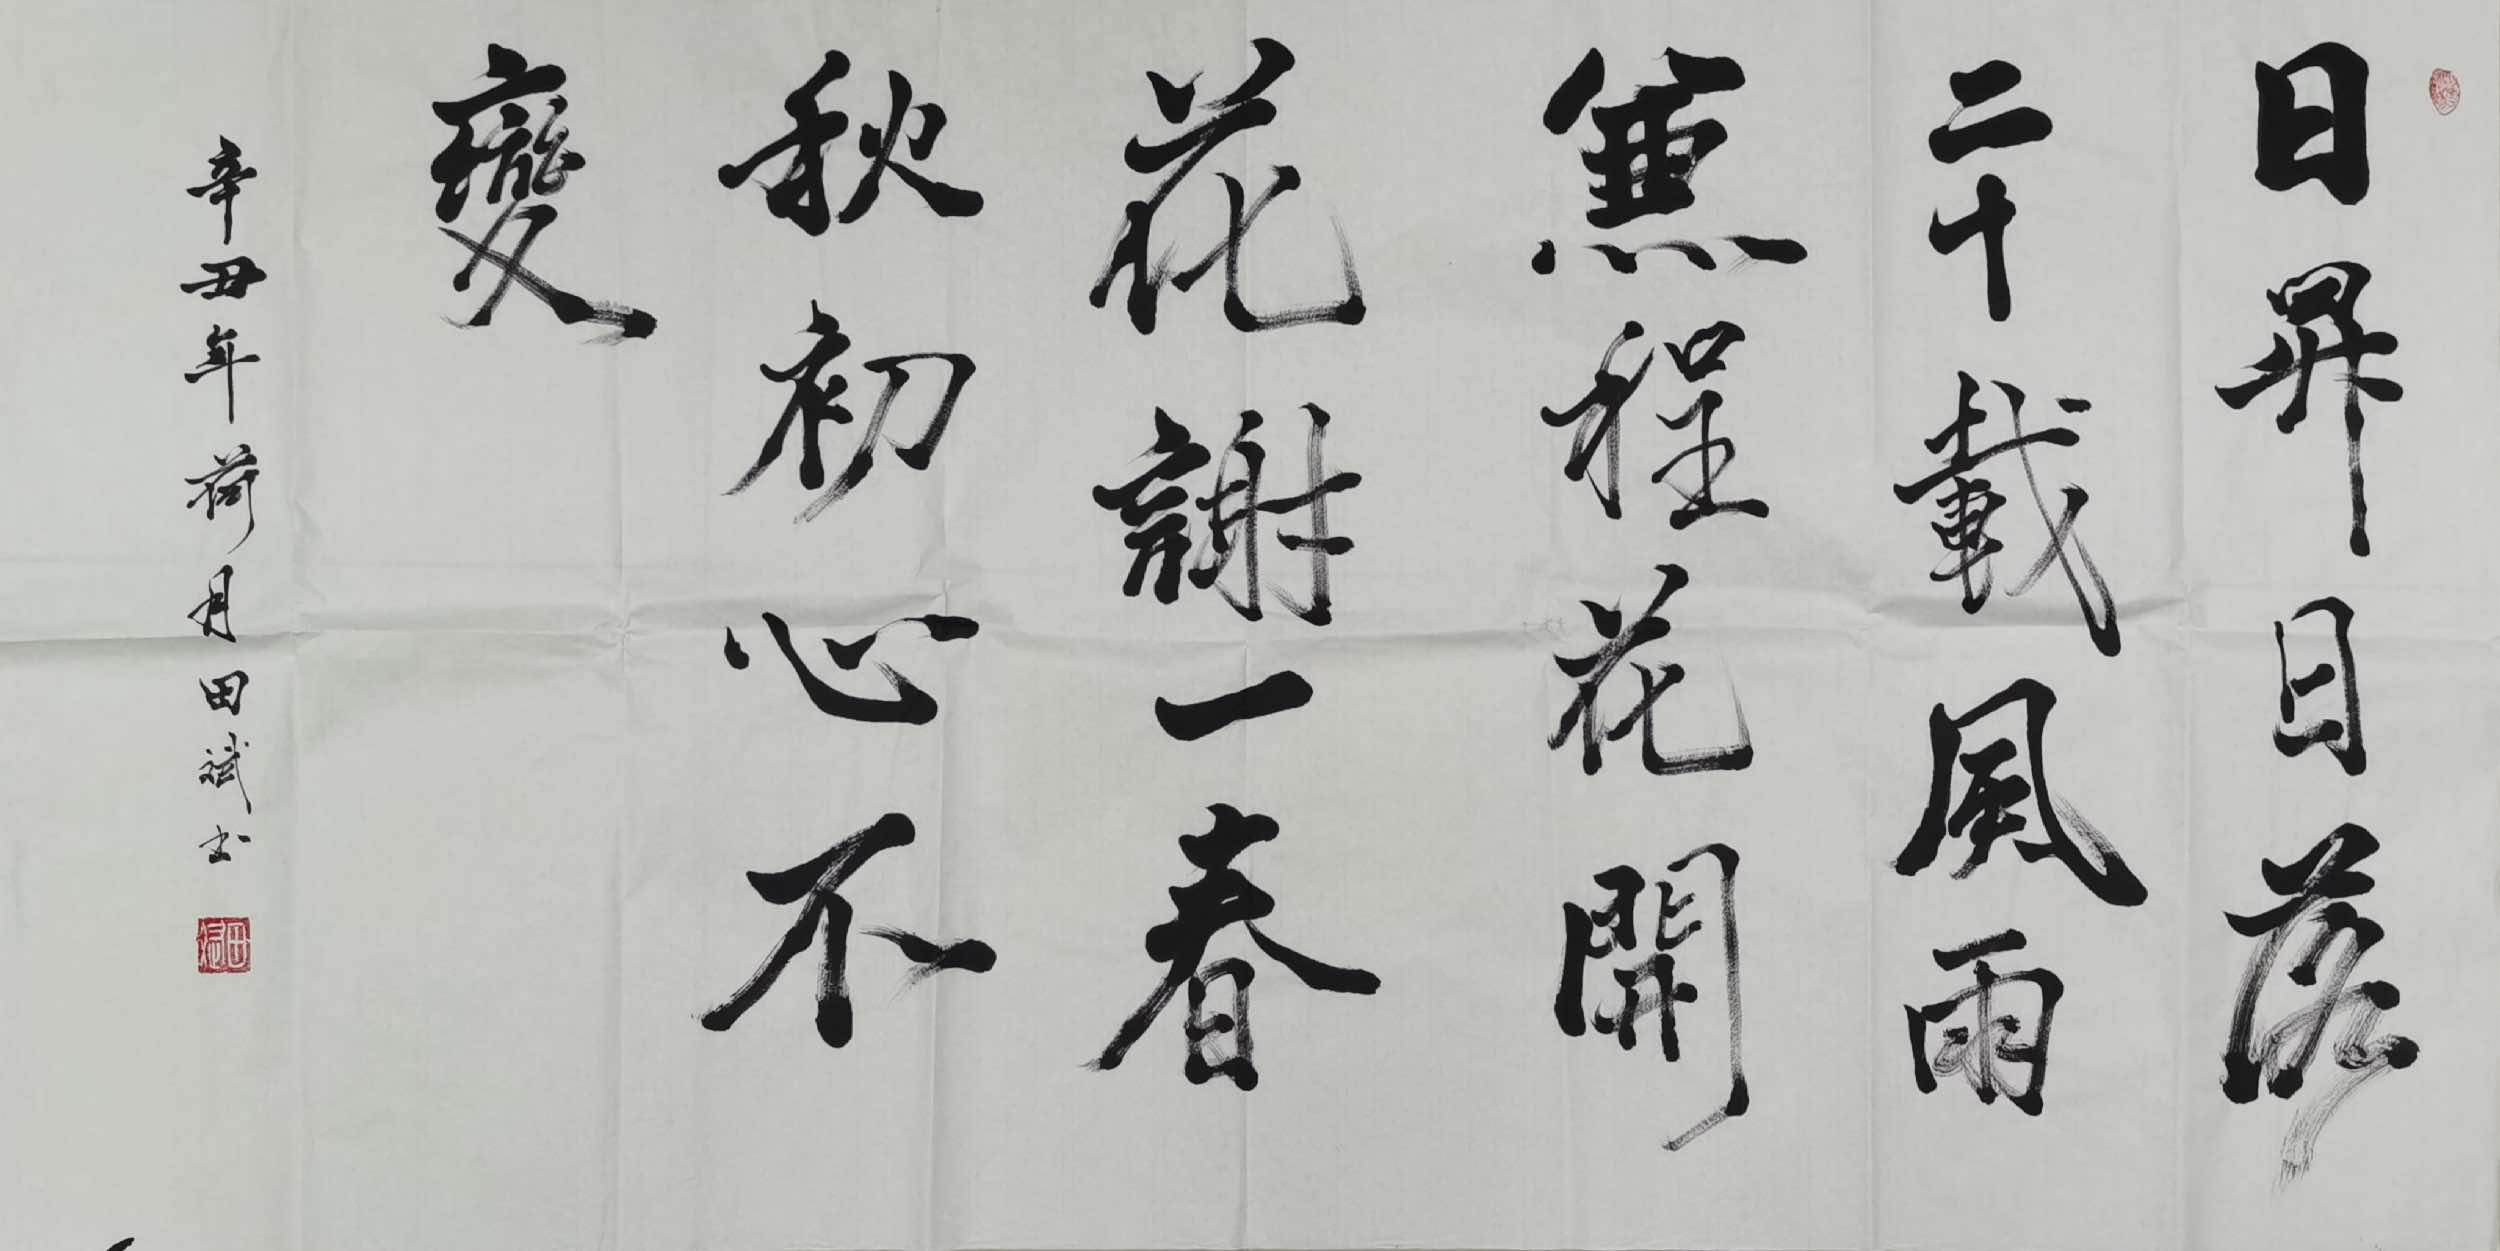 日昇日落
二十載風雨
兼程花開
花謝一春
秋初心不
變
辛丑年荷月田斌书